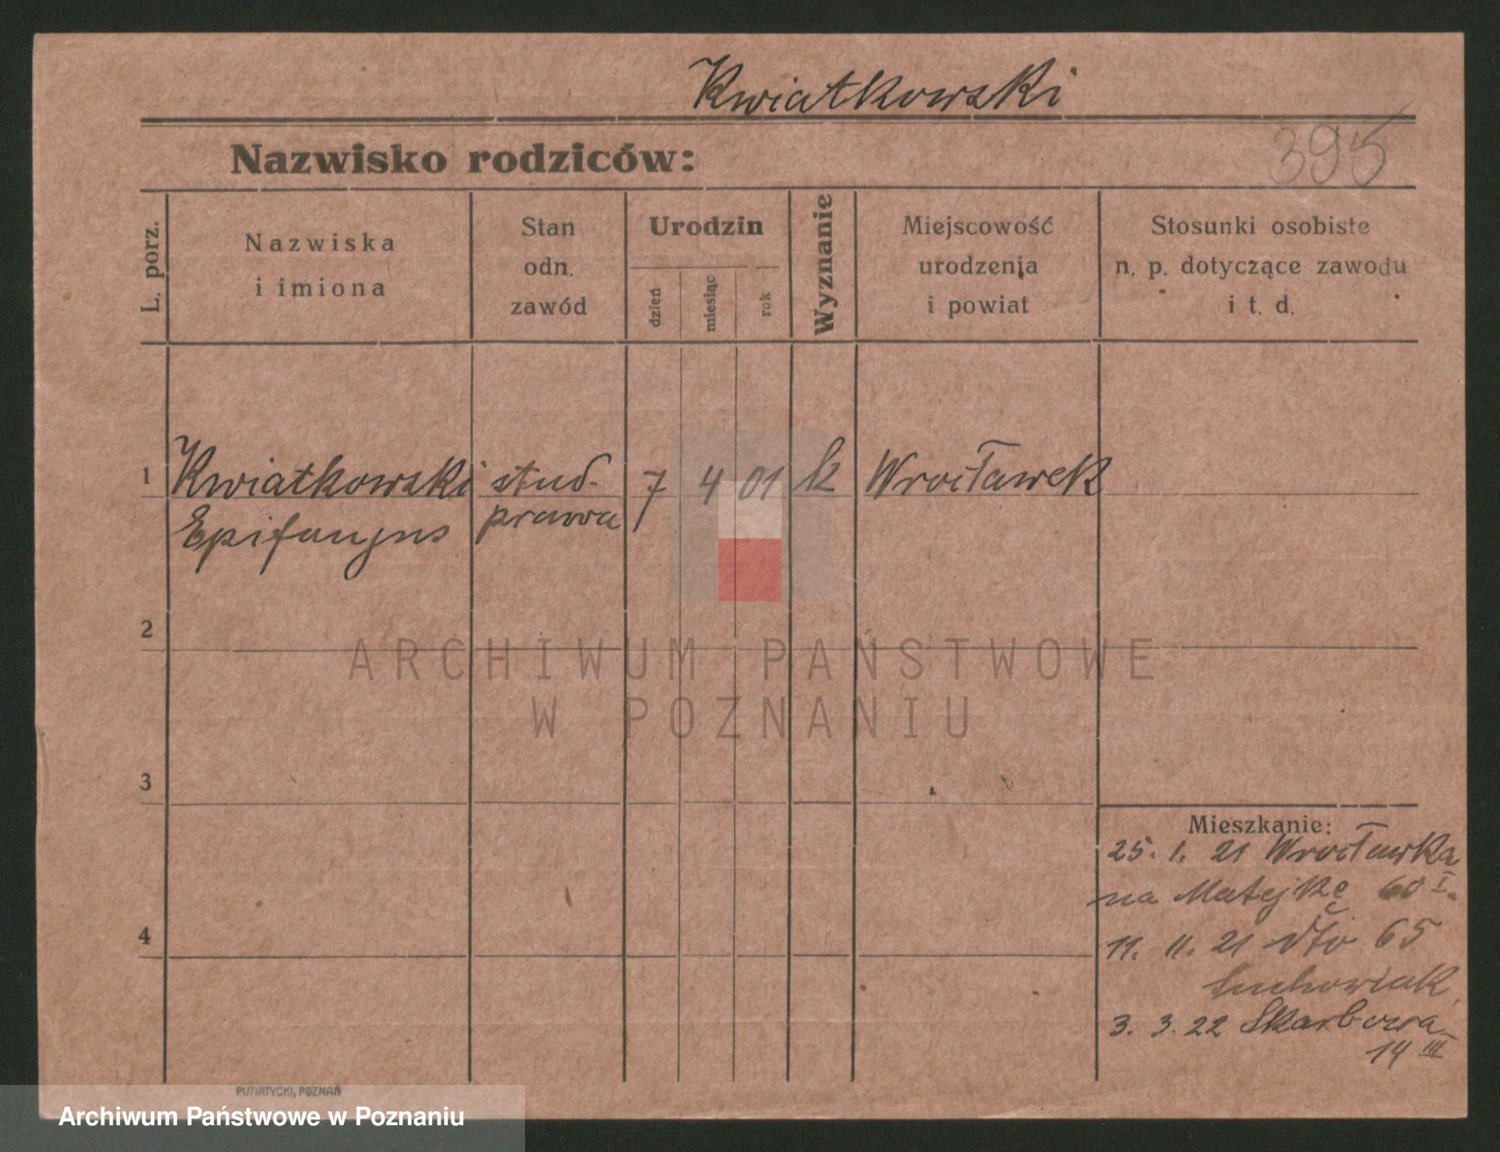 Kwiatkowski
395
Nazwisko rodziców:
L. porz.
Nazwiska
i imiona
Stan
odn.
zawód
Urodzin
dzień
miesiąc
rok
Wyznanie
Miejscowość
urodzenia
i powiat
Stosunki osobiste
n. p. dotyczące zawodu
i t. d.
1 Kwiatkowski stud. 7 4 01 k Wrocławek
Epifanjus prawa
2
ARCHIWUM PAŃSTWOWE
W POZNANIU
3
Mieszkanie:
25. 1. 21 Wrocławka
na Matejkę 60 I.
4
11. 11. 21 dto 65
3. 3. 22 Skarbowa
14 III
PUTIATYCKI, POZNAŃ
Archiwum Państwowe w Poznaniu